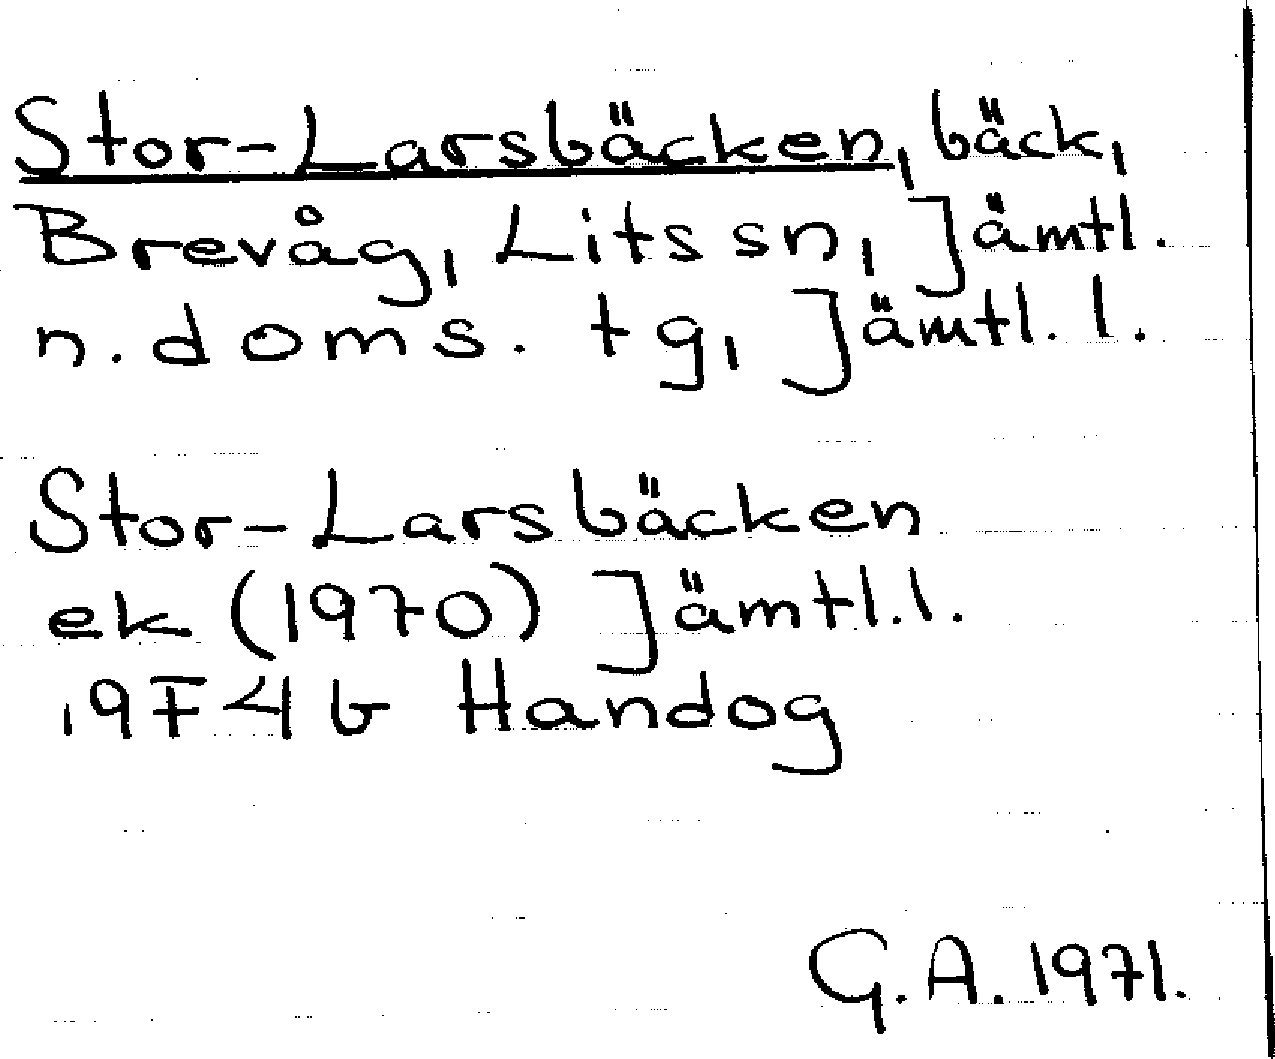 Stor-Larsbäcken, bäck,
Brevåg, Lits sn, Jämtl.
n. doms. tg, Jämtl. l.
Stor-Larsbäcken
ek (1970) Jämtl. l.
19F4b Handog
G. A. 1971.